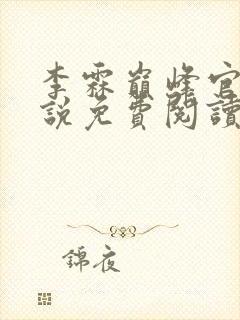 李霖巔峰官
說免費閱讀
錦夜